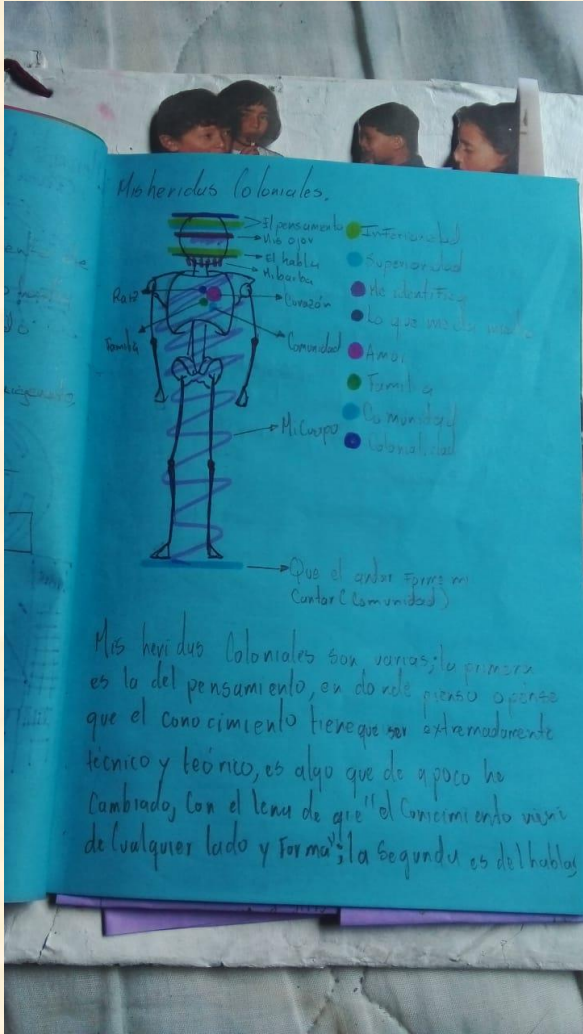 Mis heridas Coloniales.
El pensamento
Mis ojos
El habla
Mi barba
Raiz
Corazón
Familia
Comunidad
Mi Cuerpo
Inferioridad
Superioridad
Me identifica
Lo que me da
Amor
Familia
Comunidad
Colonialidad
Que el andar forme mi
Cantar (Comunidad)
Mis heridas Coloniales son varias; la primera
es la del pensamiento, en donde pienso o pensé
que el conocimiento tiene que ser extremadamente
técnico y teórico, es algo que de a poco he
Cambiado, con el lema de que "el Conocimiento viene
de Cualquier lado y Forma"; la Segunda es del habla,